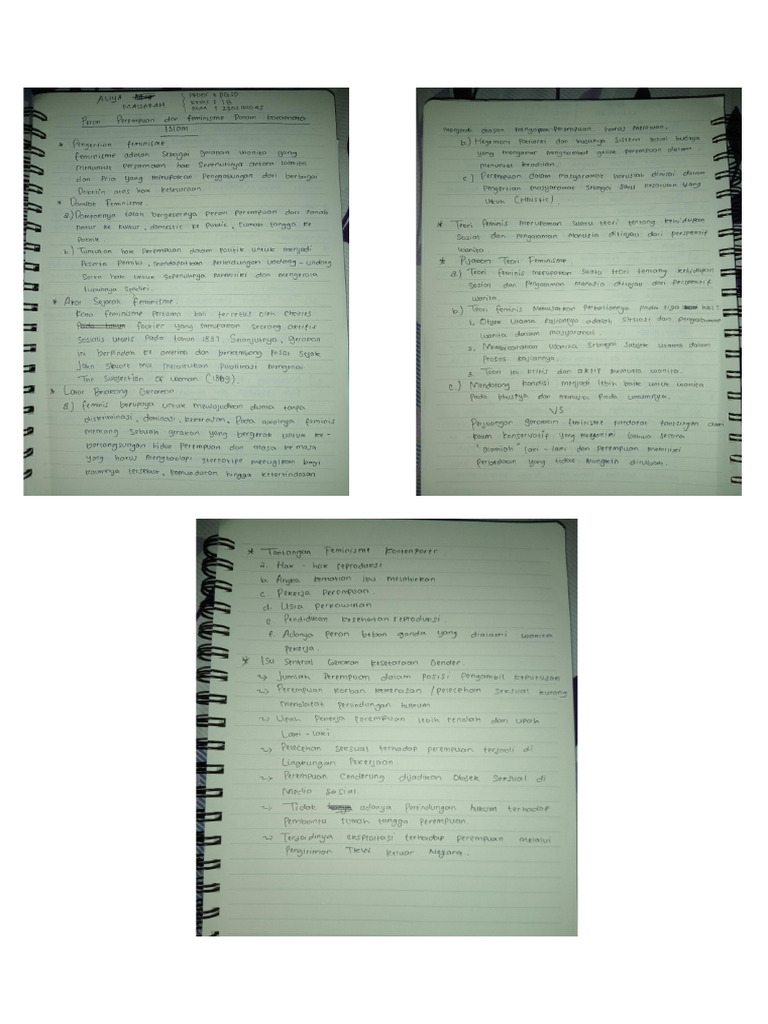 ALIYA
MAULIDAH
KELAS : 1B
Peran Perempuan dan feminisme Dalam kacamata
ISLAM
* Pengertian feminisme
Feminisme adalah sebagai gerakan wanita yang
menuntut persamaan hak sepenuhnya antara wanita
dan Pria yang merupakan Penggabungan dari berbagai
Doktrin atas hak kesetaraan.
* Dampak Feminisme.
a) Dampaknya ialah bergesernya peran Perempuan dari ranah
Privat ke Public, domestic ke Public, rumah tangga ke
Politik.
b) Tuntutan hak Perempuan dalam politik untuk menjadi
Peserta Pemilu, mendapatkan Perlindungan undang-undang
serta hak untuk sepenuhnya memiliki dan mengelola
* Akar Sejarah Feminisme.
Kata feminisme pertama kali tercetus oleh Charles
Fourier yang merupakan seorang aktifis
Sosialis utopis Pada tahun 1837. Selanjutnya, gerakan
ini berpindah ke amerika dan berkembang pesat sejak
Jahn stuart Mill melakukan Publikasi mengenai
The Subjection Of Woman (1869).
* Latar Belakang Gerakan
a) feminis berupaya untuk mewujudkan dunia tanpa
diskriminasi, dominasi, kekerasan. Pada awalnya feminis
memang sebuah gerakan yang bergerak untuk ke-
berlangsungan hidup Perempuan dari masa ke masa
yang harus menghadapi stereotipe merugikan bagi
kaumnya tersebut, kemunduran hingga ketertindasan
menjadi alasan mengapa Perempuan harus melawan.
b.) Hegemoni Patriarki dan kuatnya sistem sosial budaya
yang mengakar menghambat gerak perempuan dalam
menuntut keadilan.
c.) Perempuan dalam masyarakat haruslah dinilai dalam
Pengertian masyarakat sebagai satu kesatuan yang
utuh (Holistic)
* Teori feminis merupakan suatu teori tentang kehidupan
Sosial dan pengalaman Manusia ditinjau dari perspektif
wanita
* Pijakan Teori Feminisme
a.) Teori feminis merupakan suatu teori tentang kehidupan
Sosial dan Pengalaman Manusia ditinjau dari perspektif
wanita.
b.) Teori feminis Memusatkan Perhatiannya pada tiga hal:
1. Objek utama kajiannya adalah situasi dan pengalaman
wanita dalam masyarakat.
2. Membicarakan wanita sebagai subjek utama dalam
Proses kajiannya.
3. Teori ini kritis dan aktif membela wanita.
c.) Mendorong kondisi menjadi lebih baik untuk wanita
Pada khususnya dan manusia Pada umumnya.
VS
Perjuangan gerakan feminisme mendapat tantangan dari
kaum konservatif yang meyakini bahwa secara
"alamiah" laki-laki dan perempuan memiliki
perbedaan yang tidak mungkin dirubah.
* Tantangan Feminisme Kontemporer
a. Hak - hak reproduksi
b. Angka kematian ibu melahirkan
c. Pekerja Perempuan
d. Usia perkawinan
e. Pendidikan kesehatan reproduksi
f. Adanya peran beban ganda yang dialami wanita
Pekerja.
* Isu Sentral Gerakan Kesetaraan Gender.
~> Jumlah Perempuan dalam posisi Pengambil keputusan
~> Perempuan korban kekerasan /pelecehan seksual kurang
mendapat perlindungan hukum
~> Upah Pekerja perempuan lebih rendah dari upah
Laki-laki
~> Pelecehan seksual terhadap perempuan terjadi di
Lingkungan Pekerjaan.
~> Perempuan Cenderung dijadikan Objek Seksual di
Media Sosial.
~> Tidak adanya Perlindungan hukum terhadap
Pembantu rumah tangga perempuan
~> Terjadinya eksploitasi terhadap perempuan melalui
Pengiriman TKW keluar Negara.